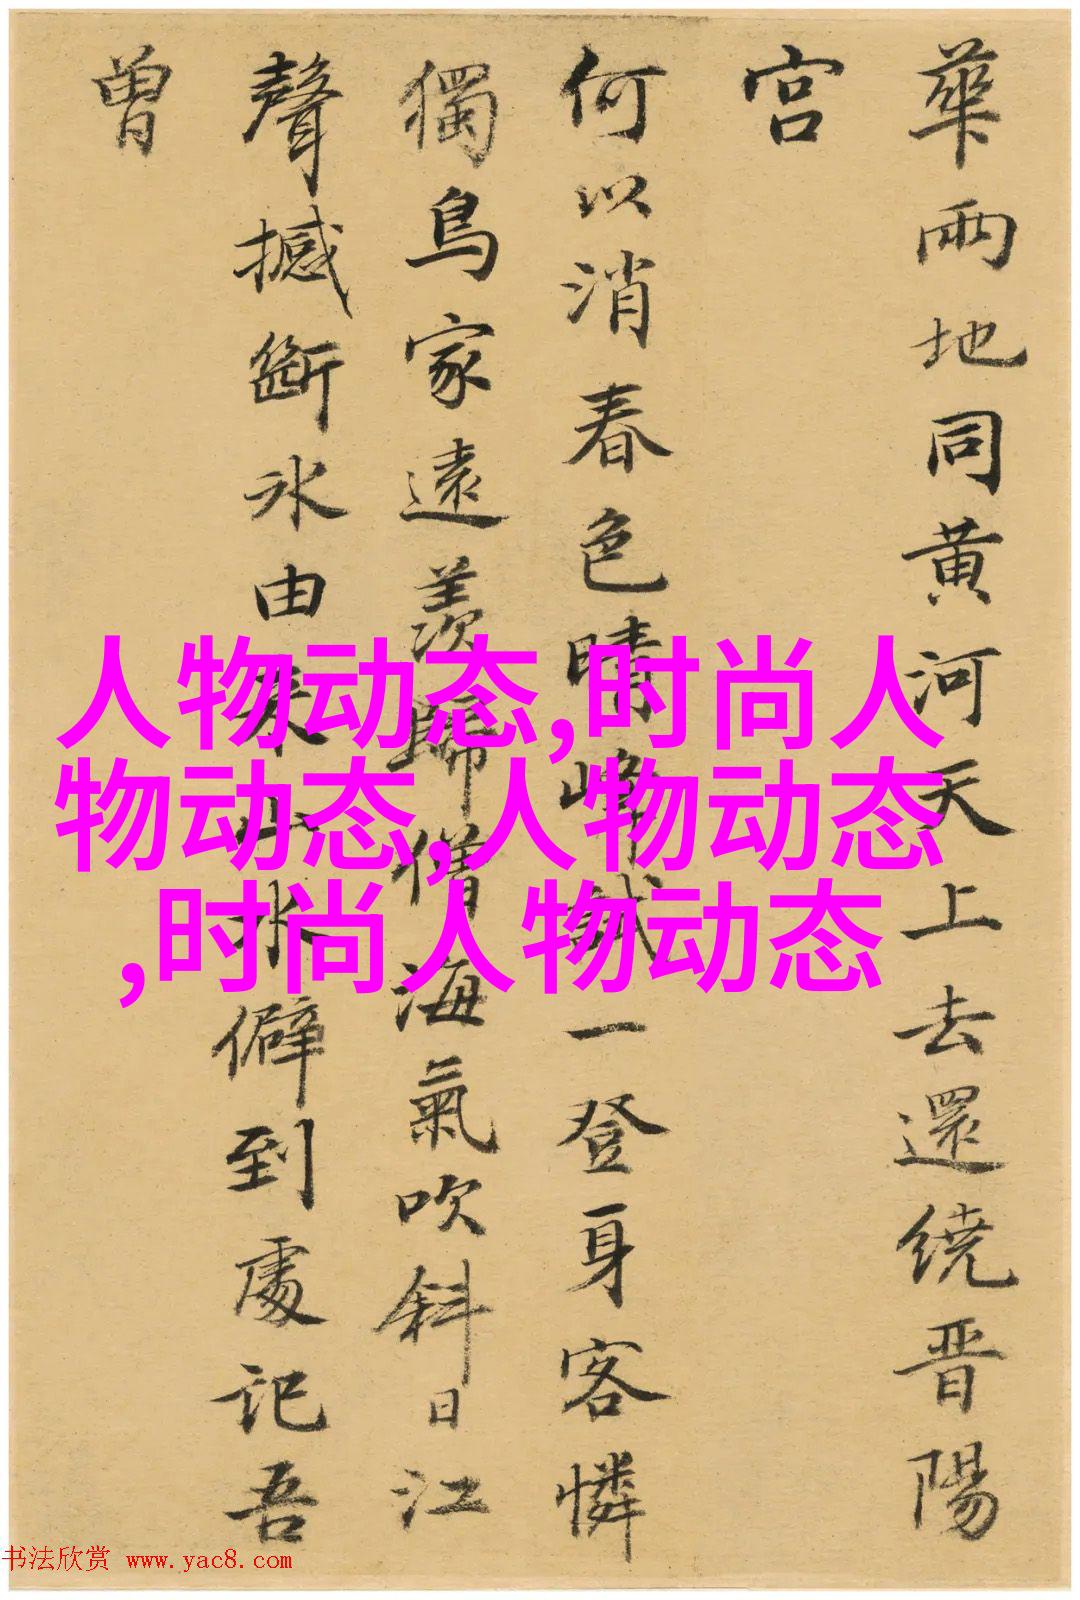 華兩地同黄河天上去還繞晋陽
宫
何以消春色晴峰試一登身客憐
獨鳥家遠羨歸僧海氣吹斜日江
聲撼斷冰由来山水僻到處記吾
曾
人物动态,时尚人
物动态,人物动态
,时尚人物动态
书法欣赏 www.yac8.com